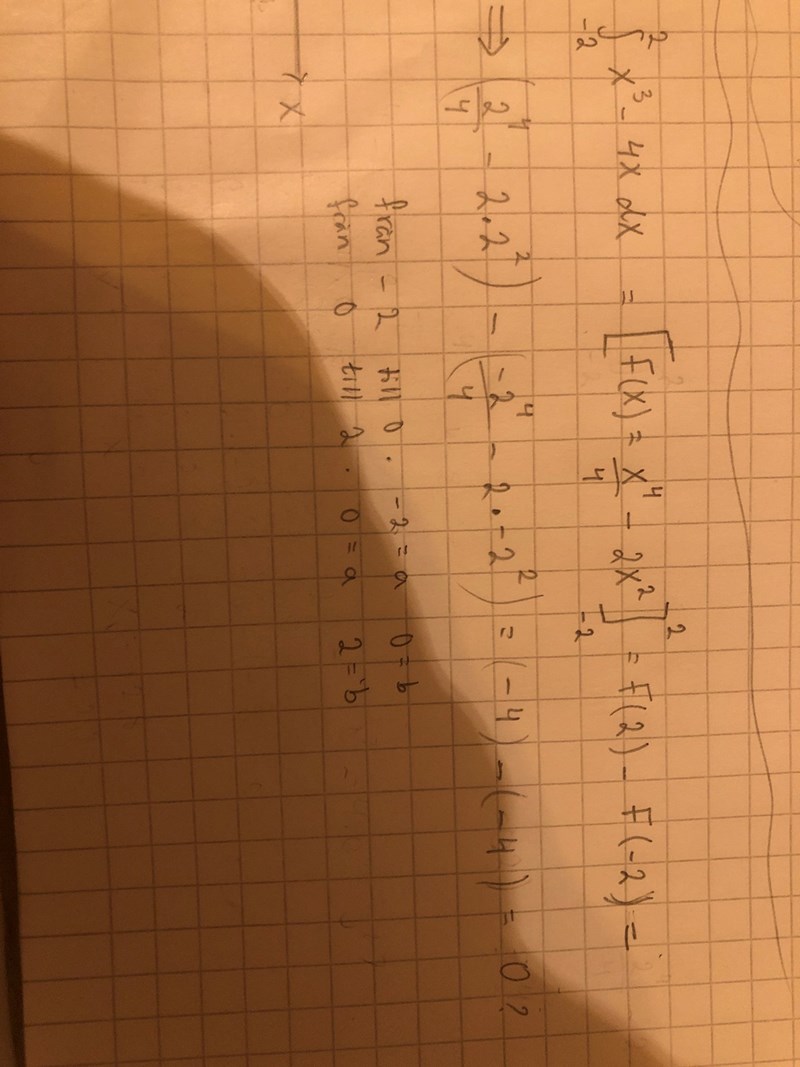 ∫₋₂² x³ - 4x dx = [F(x) = x⁴/4 - 2x²]₋₂² = F(2) - F(-2) =
⇒ (2⁴/4 - 2·2²) - (-2⁴/4 - 2·-2²) = (-4) - (-4) = 0?
från -2 till 0. -2 = a 0 = b
från 0 till 2. 0 = a 2 = b
x